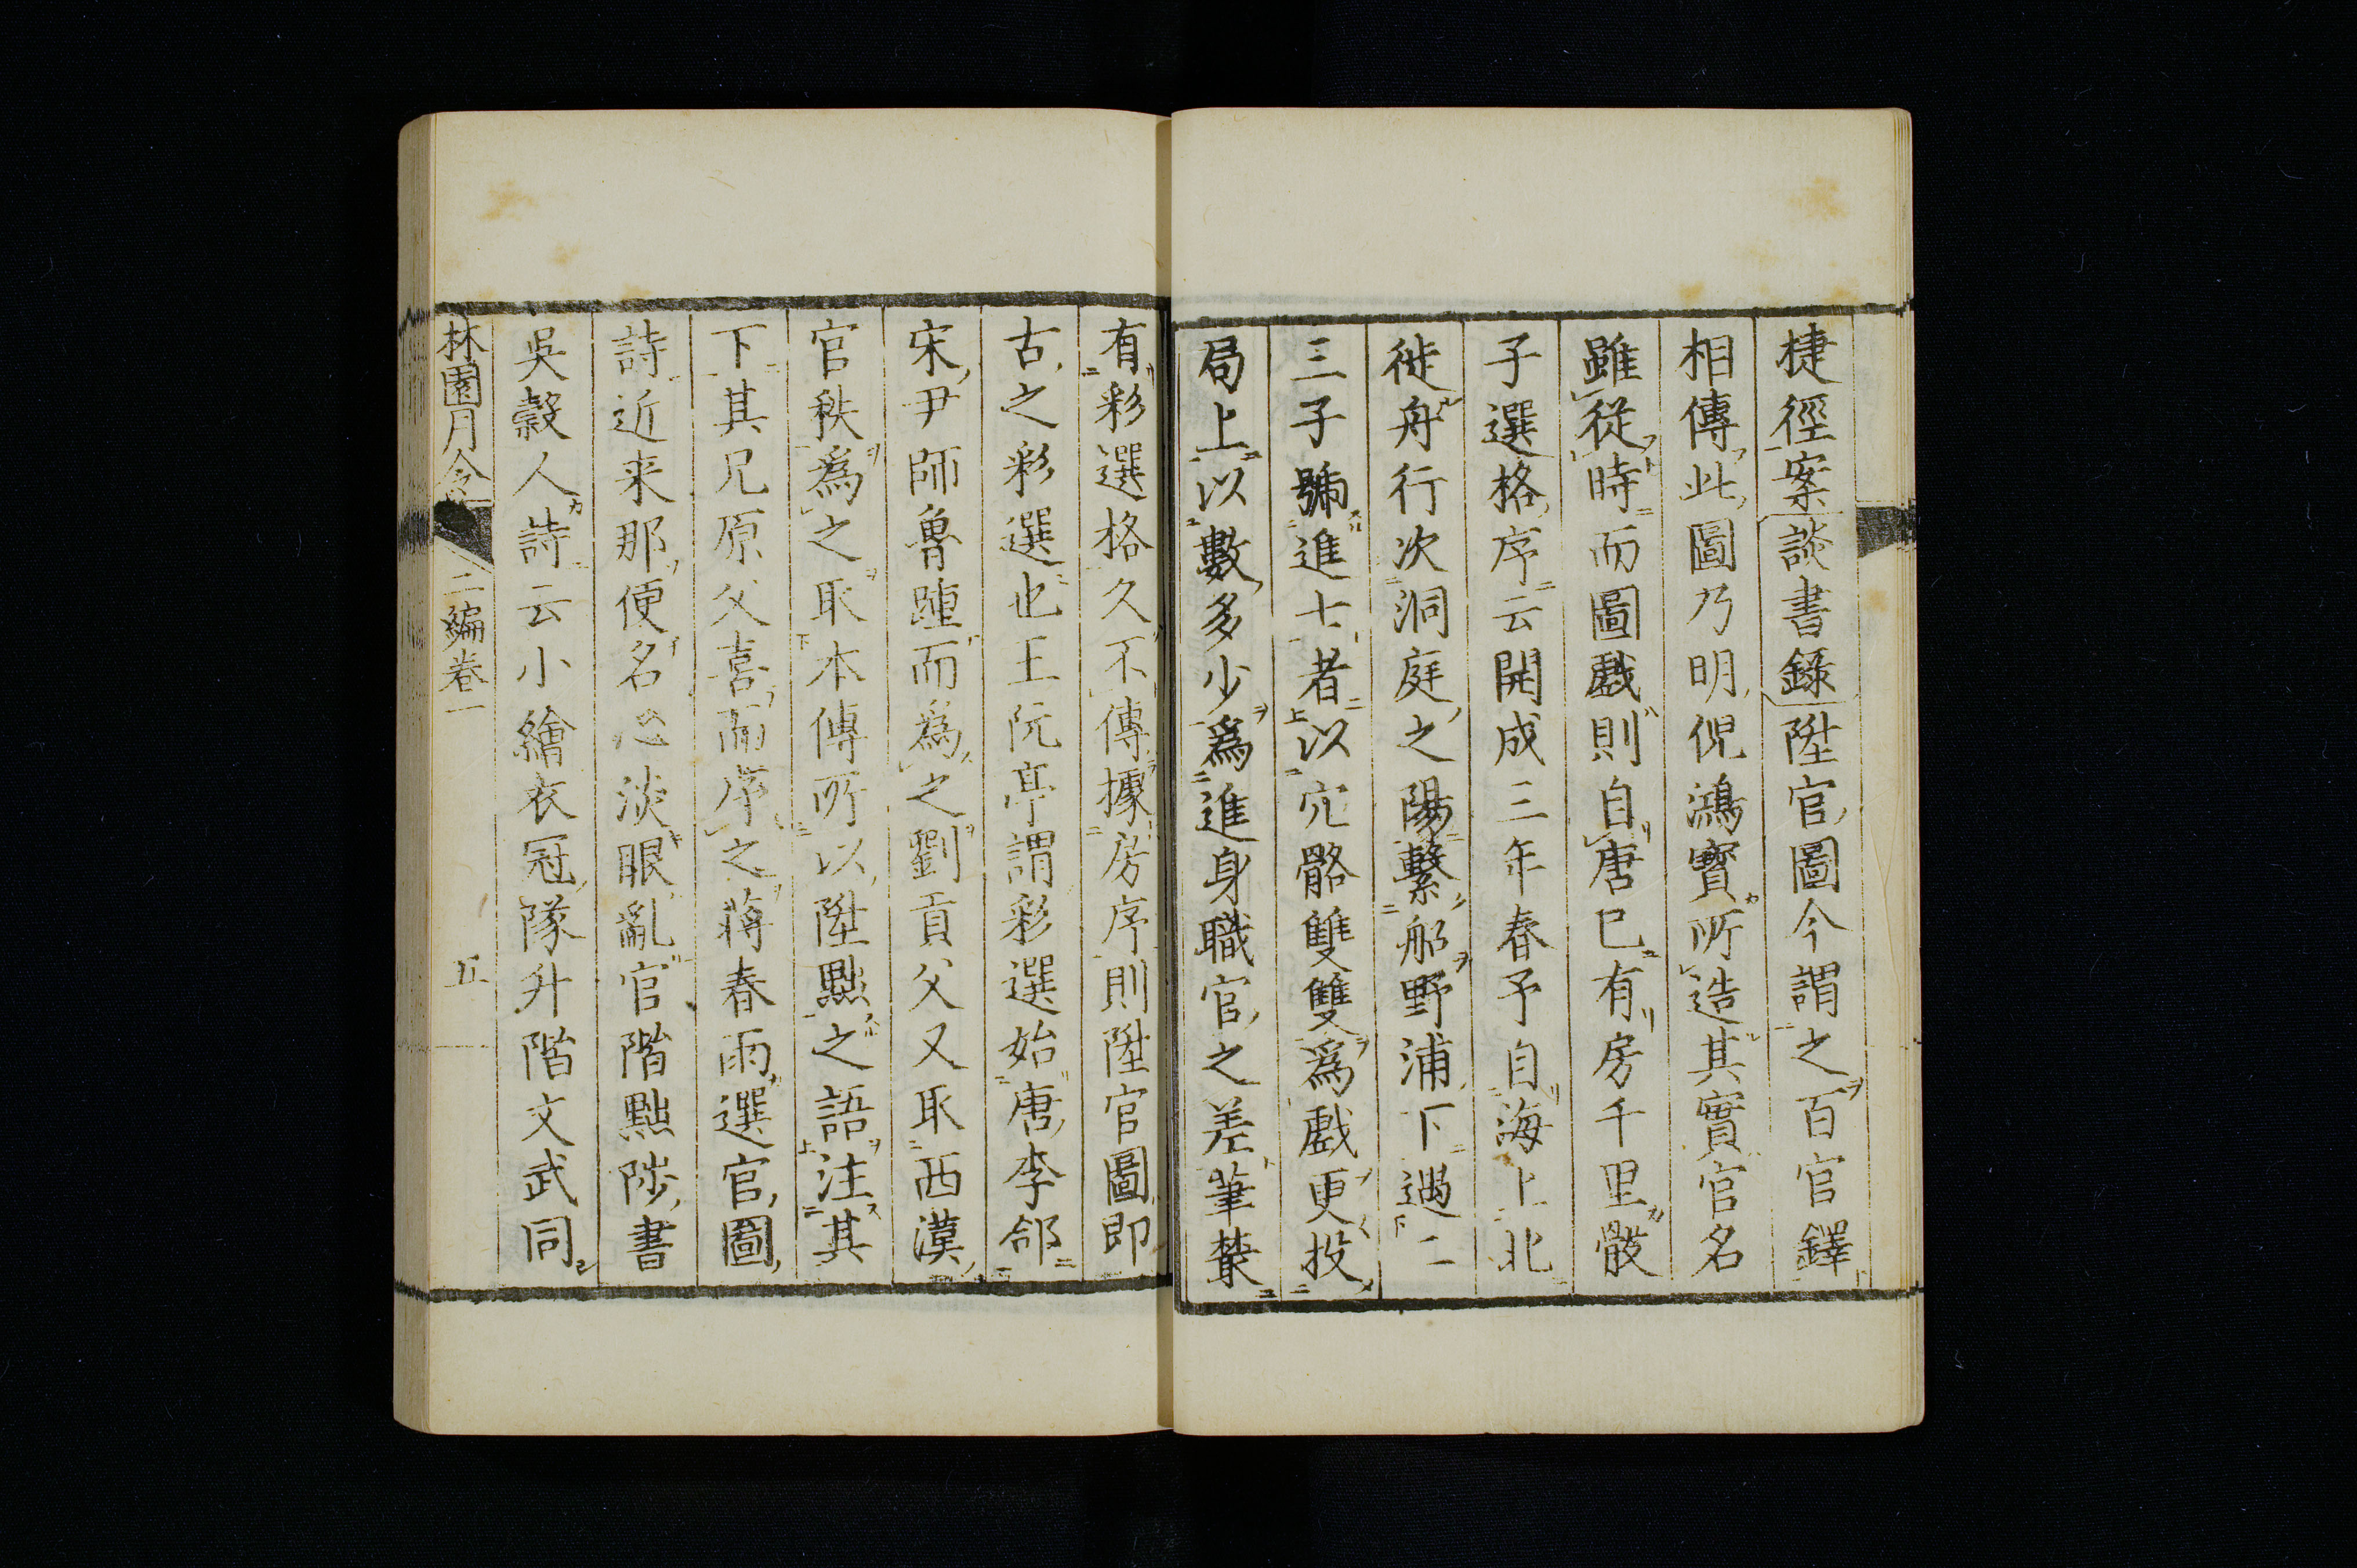 捷徑案談書錄陞官圖今謂之百官鐸
相傳此圖乃明倪鴻寳所造其實官名
雖從時而圖戲則自唐已有房千里骰
子選格序云開成三年春予自海上北
徙舟行次洞庭之陽繫船野浦下遇二
三子號進士者以穴骼雙雙為戲更投
局上以數多少為進身職官之差葦藂
有彩選格久不傳據房序則陞官圖即
古之彩選也王阮亭謂彩選始唐李郃
宋尹師魯踵而為之劉貢父又取西漢
官秩為之取本傳所以陞黜之語注其
下其兄原父喜而序之蔣春雨選官圖
詩近来那便名心淡眼亂官階黜陟書
吳穀人詩云小繪衣冠隊升階文武同
林園月令 二編卷一 五